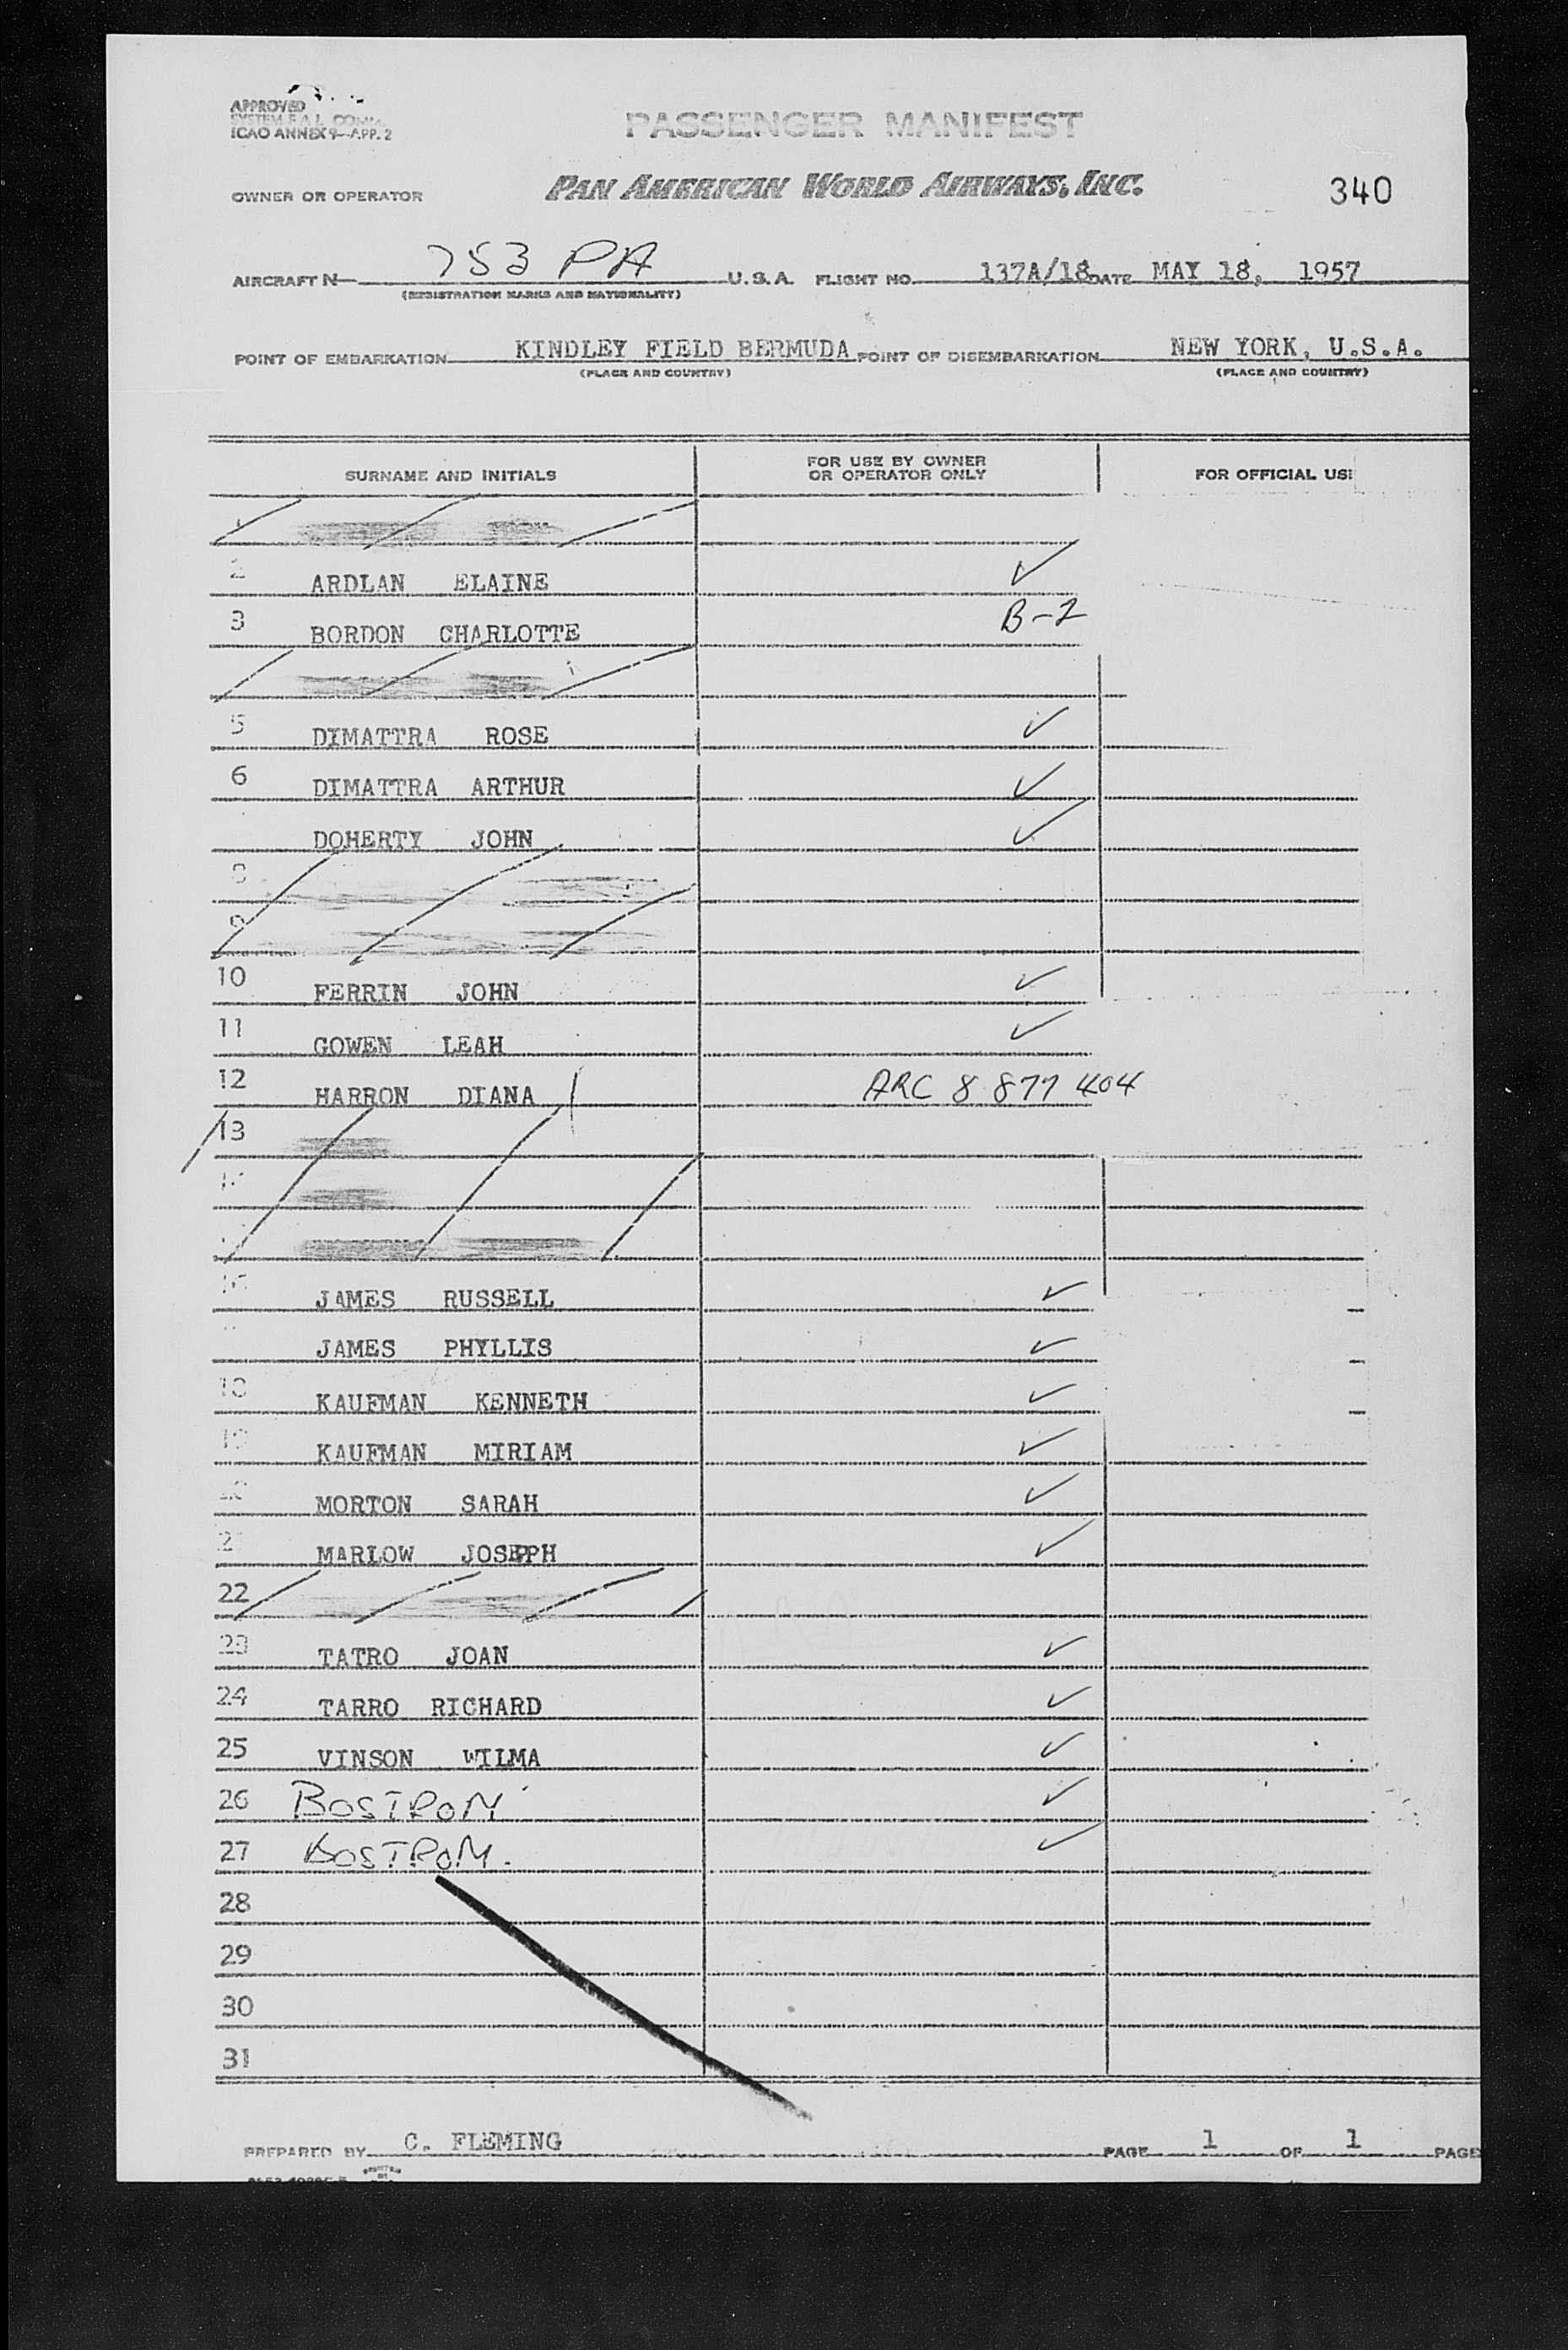 APPROVED
SYSTEM F.A.L. COMM.
ICAO ANNEX 9—APP. 2
PASSENGER MANIFEST
OWNER OR OPERATOR PAN AMERICAN WORLD AIRWAYS, INC. 340
AIRCRAFT N 753 PA U.S.A. FLIGHT NO. 137A/18 DATE MAY 18, 1957
(REGISTRATION MARKS AND NATIONALITY)
POINT OF EMBARKATION KINDLEY FIELD BERMUDA POINT OF DISEMBARKATION NEW YORK, U.S.A.
(PLACE AND COUNTRY) (PLACE AND COUNTRY)
SURNAME AND INITIALS FOR USE BY OWNER OR OPERATOR ONLY FOR OFFICIAL US
1
2 ARDLAN ELAINE ✓
3 BORDON CHARLOTTE B-2
5 DIMATTRA ROSE ✓
6 DIMATTRA ARTHUR ✓
DOHERTY JOHN ✓
8
9
10 FERRIN JOHN ✓
11 GOWEN LEAH ✓
12 HARRON DIANA ARC 8 877 404
13
16 JAMES RUSSELL ✓
JAMES PHYLLIS ✓
18 KAUFMAN KENNETH ✓
19 KAUFMAN MIRIAM ✓
20 MORTON SARAH ✓
2 MARLOW JOSEPH ✓
22
23 TATRO JOAN ✓
24 TARRO RICHARD ✓
25 VINSON WILMA ✓
26 BOSTROM ✓
27 BOSTROM. ✓
28
29
30
31
PREPARED BY C. FLEMING PAGE 1 OF 1 PAGE